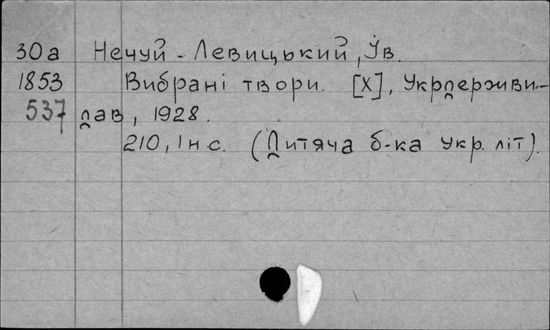 30а Нечуй-Левицький, Ів.
1853 Вибрані твори. [Х], Укрдержви-
537 дав, 1928.
210, 1 н с. (Дитяча б-ка укр. літ).